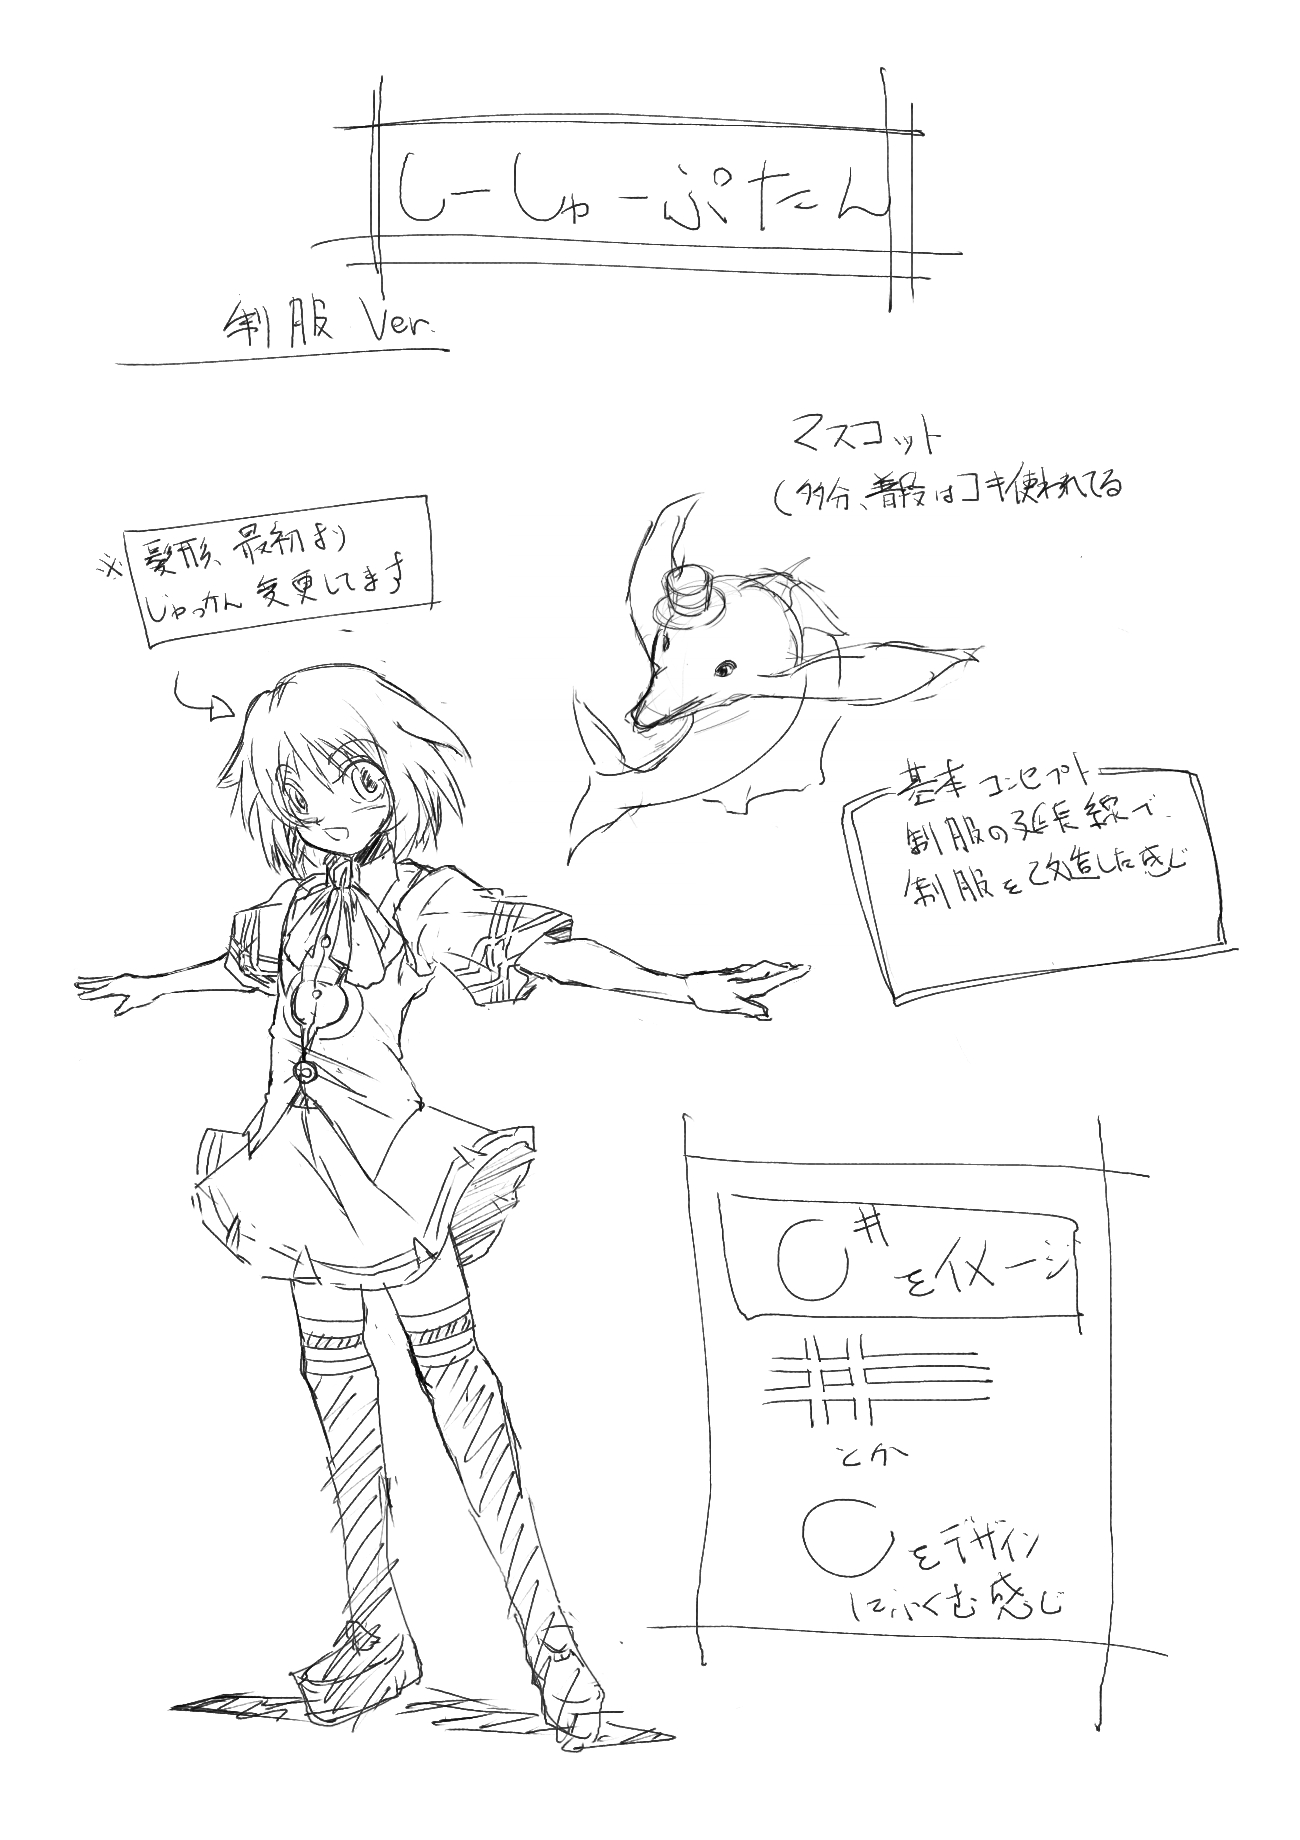 しーしゅーぷたん
制服 Ver.
マスコット
(多分、普段はコキ使われてる
※ 髪形、最初より
じゃっかん変更してます
基本コンセプト
制服の延長線で、
制服を改造した感じ
C#をイメージ
とか
Cをデザイン
にふくむ感じ